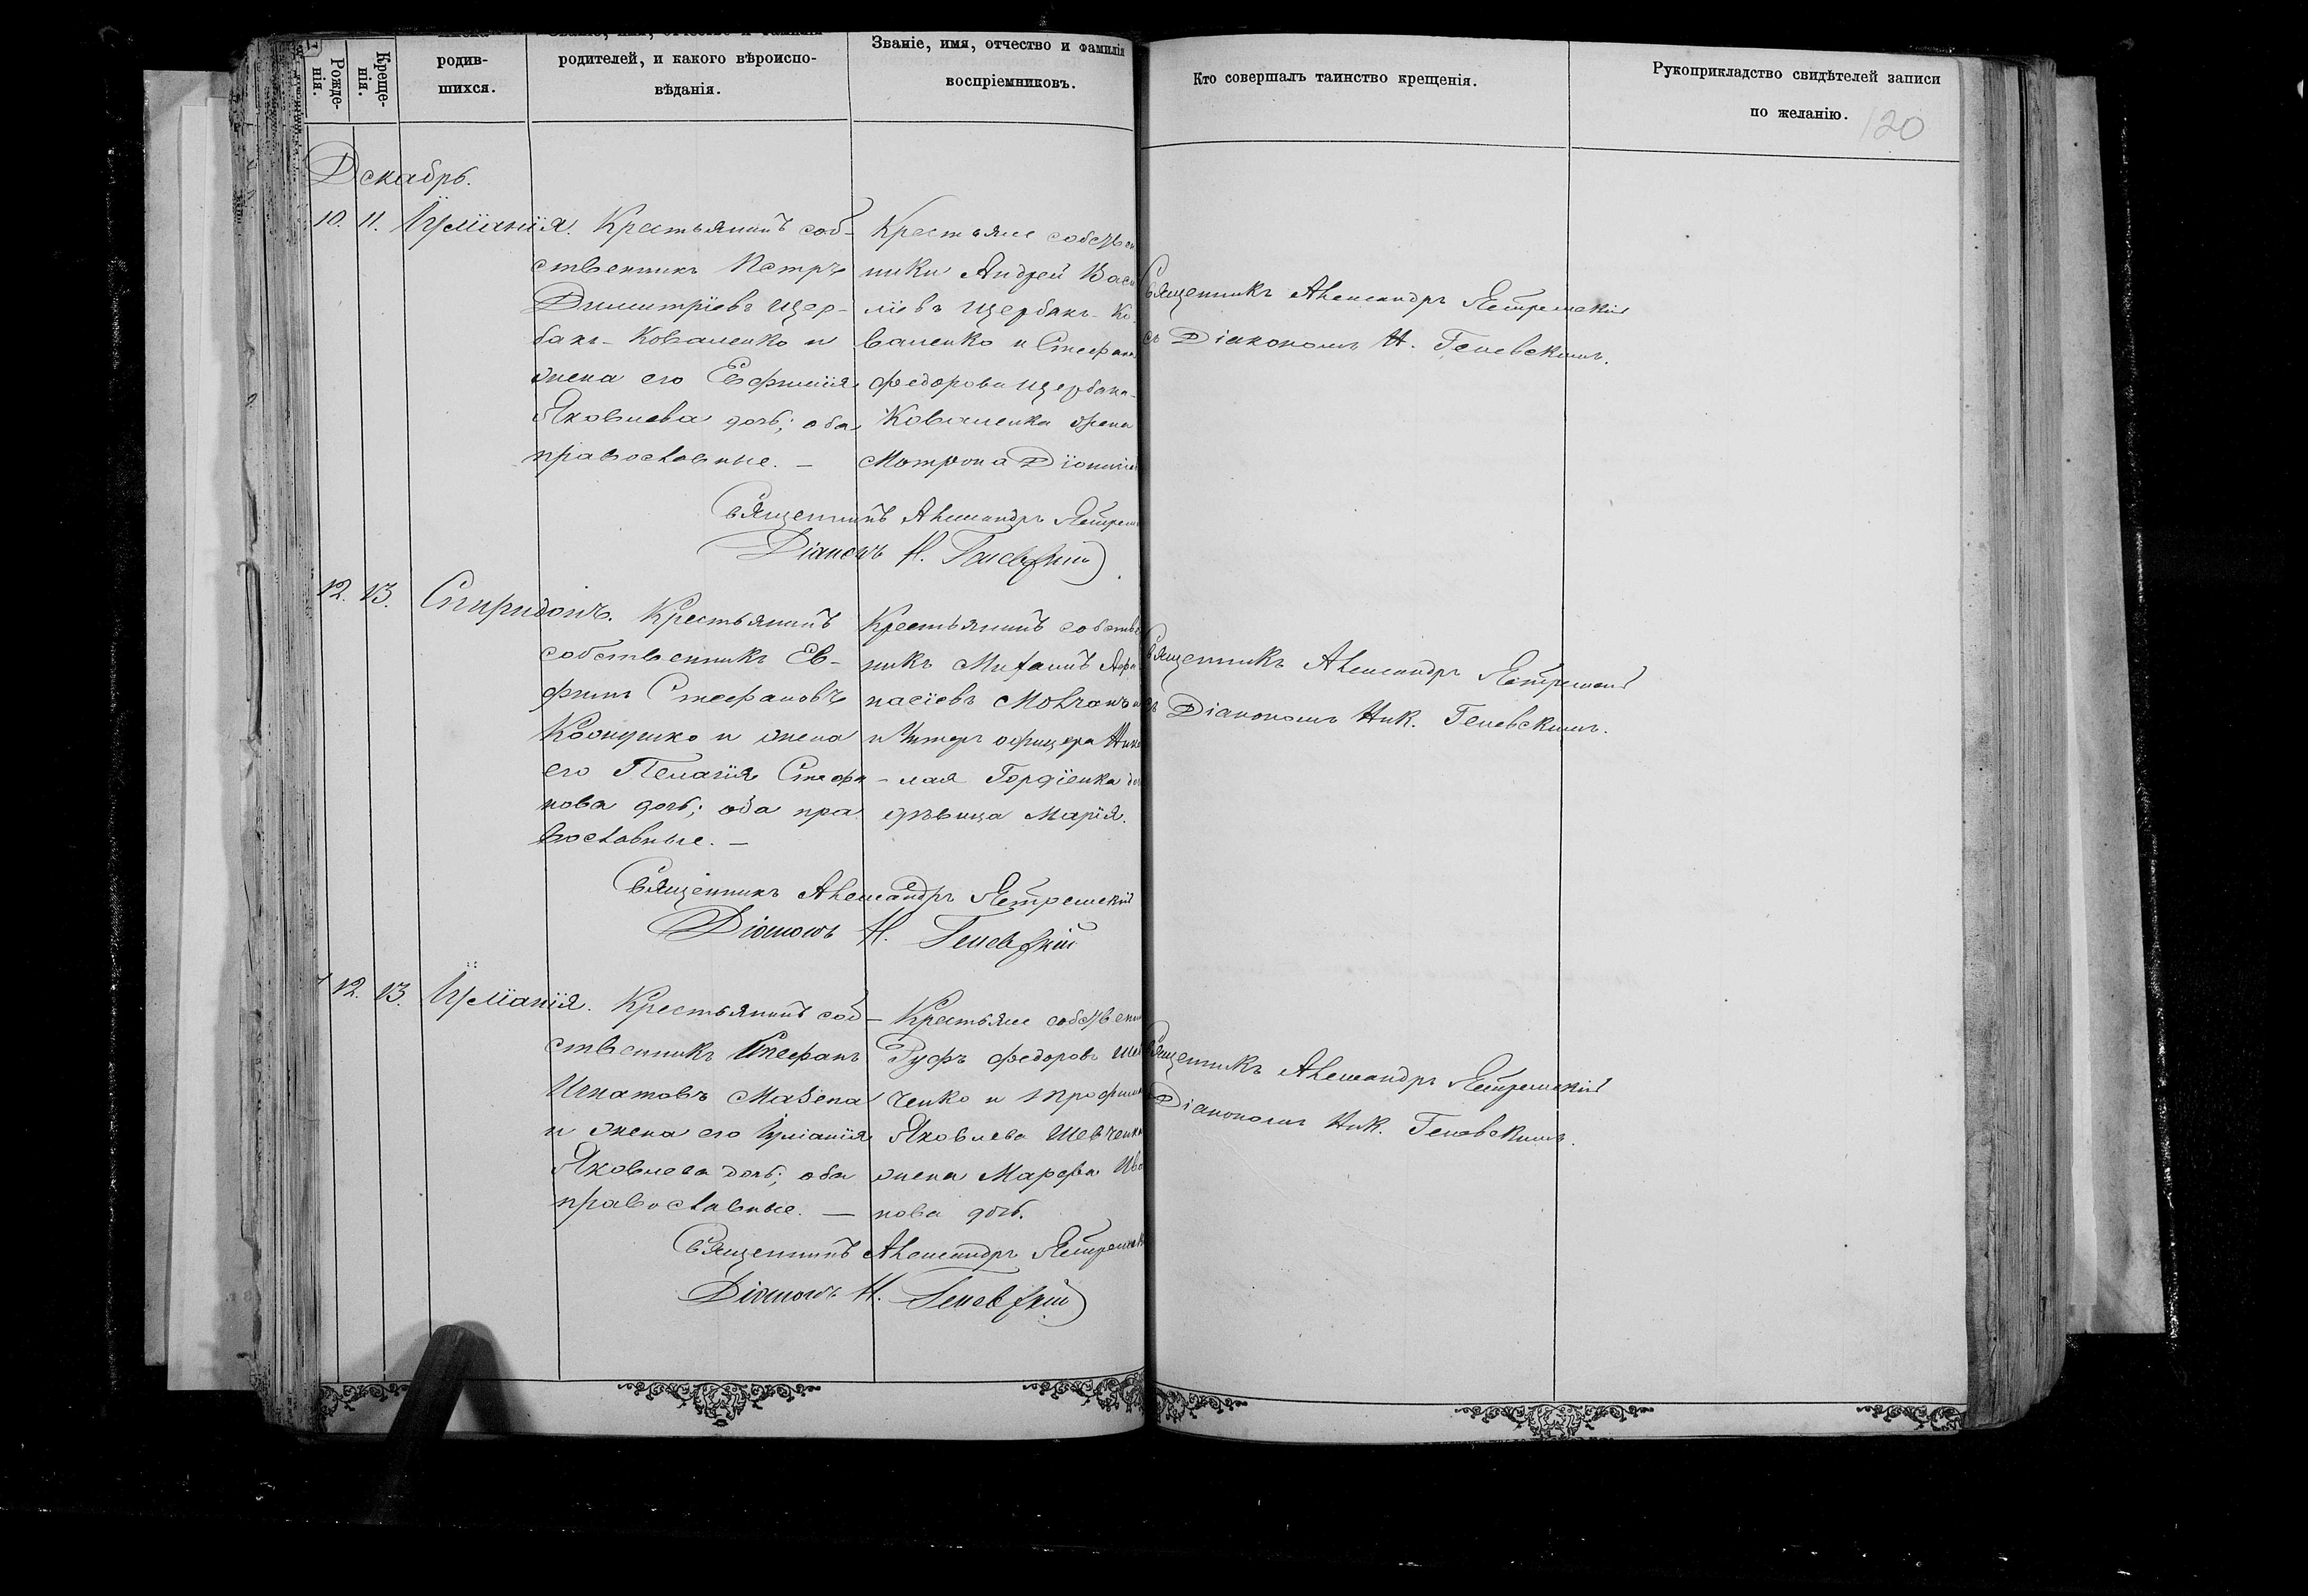 Рожде-
нія.
Креще-
нія.
родив-
шихся.
родителей, и какого вѣроиспо-
вѣданія.
Званіе, имя, отчество и фамилія
воспріемниковъ.
Кто совершалъ таинство крещенія.
Рукоприкладство свидѣтелей записи
по желанію.
120
Декабрь.
10. 11. Іуліанія.
Крестьянинъ соб-
ственникъ Петръ
Димитріевъ Щер-
бакъ-Коваленко и
жена его Евфимія
Яковлева дочь; оба
православные. —
Крестьяне собств
ники Андрей Васи
ліевъ Щербакъ-Ко-
валенко и Стефана
Федорова Щербака-
Коваленка жена
Мотрона Діонисі
Священникъ Александръ
Діаконъ Н.
Священникъ Александръ
съ Діакономъ Н.
12. 13. Спиридонъ.
Крестьянинъ
собственникъ Ев-
фимъ Стефановъ
и жена
его Пелагія Стефа-
нова дочь; оба пра
вославные. —
Крестьянинъ собств
никъ Михаилъ Афа
насіевъ Молчанъ
и Унтеръ офицера Нико
лая Гордіенка
дѣвица Марія.
Священникъ Александръ
Діаконъ Н.
Священникъ Александръ
съ Діакономъ Ник.
12. 13. Іуліанія.
Крестьянинъ соб-
ственникъ Стефанъ
Игнатовъ Мазепа
и жена его Іуліанія
Яковлева дочь; оба
православные. —
Крестьяне собствен
Руфъ Федоровъ Шев
ченко и Трофима
Яковлева Шевченка
жена Марфа Ива
нова дочь.
Священникъ Александръ
Діаконъ Н.
Священникъ Александръ
Діакономъ Ник.